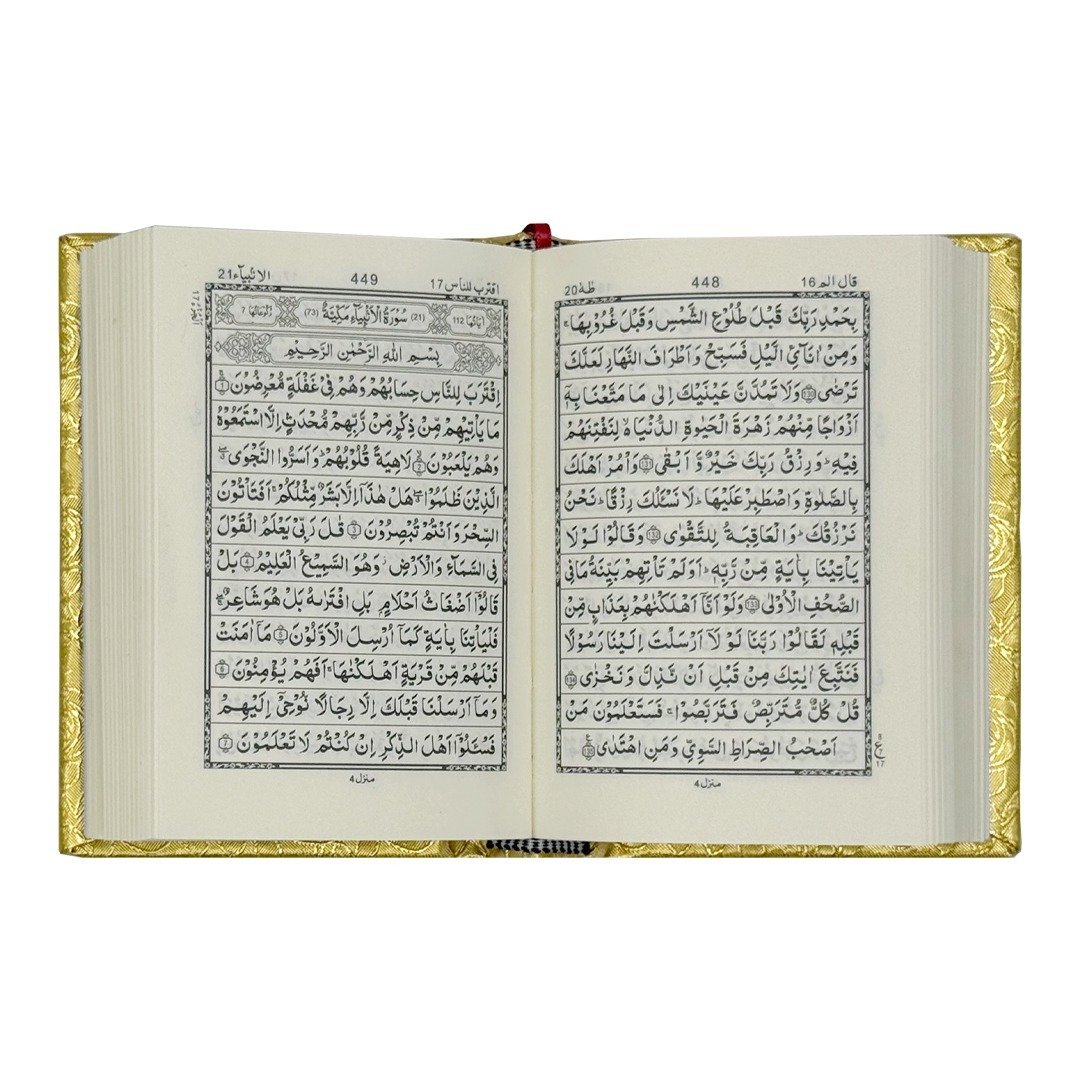 قال الم 16
448
طٰهٰ 20
بِحَمْدِ رَبِّكَ قَبْلَ طُلُوْعِ الشَّمْسِ وَقَبْلَ غُرُوْبِهَا ۚ
وَمِنْ اٰنَآئِ الَّيْلِ فَسَبِّحْ وَاَطْرَافَ النَّهَارِ لَعَلَّكَ
تَرْضٰى ﴿130﴾ وَلَا تَمُدَّنَّ عَيْنَيْكَ اِلٰى مَا مَتَّعْنَا بِهٖٓ
اَزْوَاجًا مِّنْهُمْ زَهْرَةَ الْحَيٰوةِ الدُّنْيَا ەۙ لِنَفْتِنَهُمْ
فِيْهِ ؕ وَرِزْقُ رَبِّكَ خَيْرٌ وَّ اَبْقٰى ﴿131﴾ وَاْمُرْ اَهْلَكَ
بِالصَّلٰوةِ وَاصْطَبِرْ عَلَيْهَا ؕ لَا نَسْئَلُكَ رِزْقًا ؕ نَحْنُ
نَرْزُقُكَ ؕ وَالْعَاقِبَةُ لِلتَّقْوٰى ﴿132﴾ وَقَالُوْا لَوْلَا
يَاْتِيْنَا بِاٰيَةٍ مِّنْ رَّبِّهٖ ؕ اَوَلَمْ تَاْتِهِمْ بَيِّنَةُ مَا فِى
الصُّحُفِ الْاُوْلٰى ﴿133﴾ وَلَوْ اَنَّآ اَهْلَكْنٰهُمْ بِعَذَابٍ مِّنْ
قَبْلِهٖ لَقَالُوْا رَبَّنَا لَوْ لَآ اَرْسَلْتَ اِلَيْنَا رَسُوْلًا
فَنَتَّبِعَ اٰيٰتِكَ مِنْ قَبْلِ اَنْ نَّذِلَّ وَنَخْزٰى ﴿134﴾
قُلْ كُلٌّ مُّتَرَبِّصٌ فَتَرَبَّصُوْا ۚ فَسَتَعْلَمُوْنَ مَنْ
اَصْحٰبُ الصِّرَاطِ السَّوِيِّ وَمَنِ اهْتَدٰى ﴿135﴾
منزل 4
اقترب للناس 17
449
الانبيآء 21
اٰيَاتُهَا 112
(21) سُوْرَةُ الْاَنْۢبِيَآءِ مَكِّيَّةٌ (73)
رُكُوْعَاتُهَا 7
بِسْمِ اللّٰهِ الرَّحْمٰنِ الرَّحِيْمِ
اِقْتَرَبَ لِلنَّاسِ حِسَابُهُمْ وَهُمْ فِيْ غَفْلَةٍ مُّعْرِضُوْنَ ﴿1﴾
مَا يَاْتِيْهِمْ مِّنْ ذِكْرٍ مِّنْ رَّبِّهِمْ مُّحْدَثٍ اِلَّا اسْتَمَعُوْهُ
وَهُمْ يَلْعَبُوْنَ ﴿2﴾ لَاهِيَةً قُلُوْبُهُمْ ؕ وَاَسَرُّوا النَّجْوَى ۖ
الَّذِيْنَ ظَلَمُوْا ۖ هَلْ هٰذَآ اِلَّا بَشَرٌ مِّثْلُكُمْ ۚ اَفَتَاْتُوْنَ
السِّحْرَ وَاَنْتُمْ تُبْصِرُوْنَ ﴿3﴾ قٰلَ رَبِّيْ يَعْلَمُ الْقَوْلَ
فِى السَّمَآءِ وَالْاَرْضِ ؗ وَهُوَ السَّمِيْعُ الْعَلِيْمُ ﴿4﴾ بَلْ
قَالُوْٓا اَضْغَاثُ اَحْلَامٍۢ بَلِ افْتَرٰىهُ بَلْ هُوَ شَاعِرٌ ۖ
فَلْيَاْتِنَا بِاٰيَةٍ كَمَآ اُرْسِلَ الْاَوَّلُوْنَ ﴿5﴾ مَآ اٰمَنَتْ
قَبْلَهُمْ مِّنْ قَرْيَةٍ اَهْلَكْنٰهَا ۚ اَفَهُمْ يُؤْمِنُوْنَ ﴿6﴾
وَمَآ اَرْسَلْنَا قَبْلَكَ اِلَّا رِجَالًا نُّوْحِيْٓ اِلَيْهِمْ
فَسْئَلُوْٓا اَهْلَ الذِّكْرِ اِنْ كُنْتُمْ لَا تَعْلَمُوْنَ ﴿7﴾
منزل 4